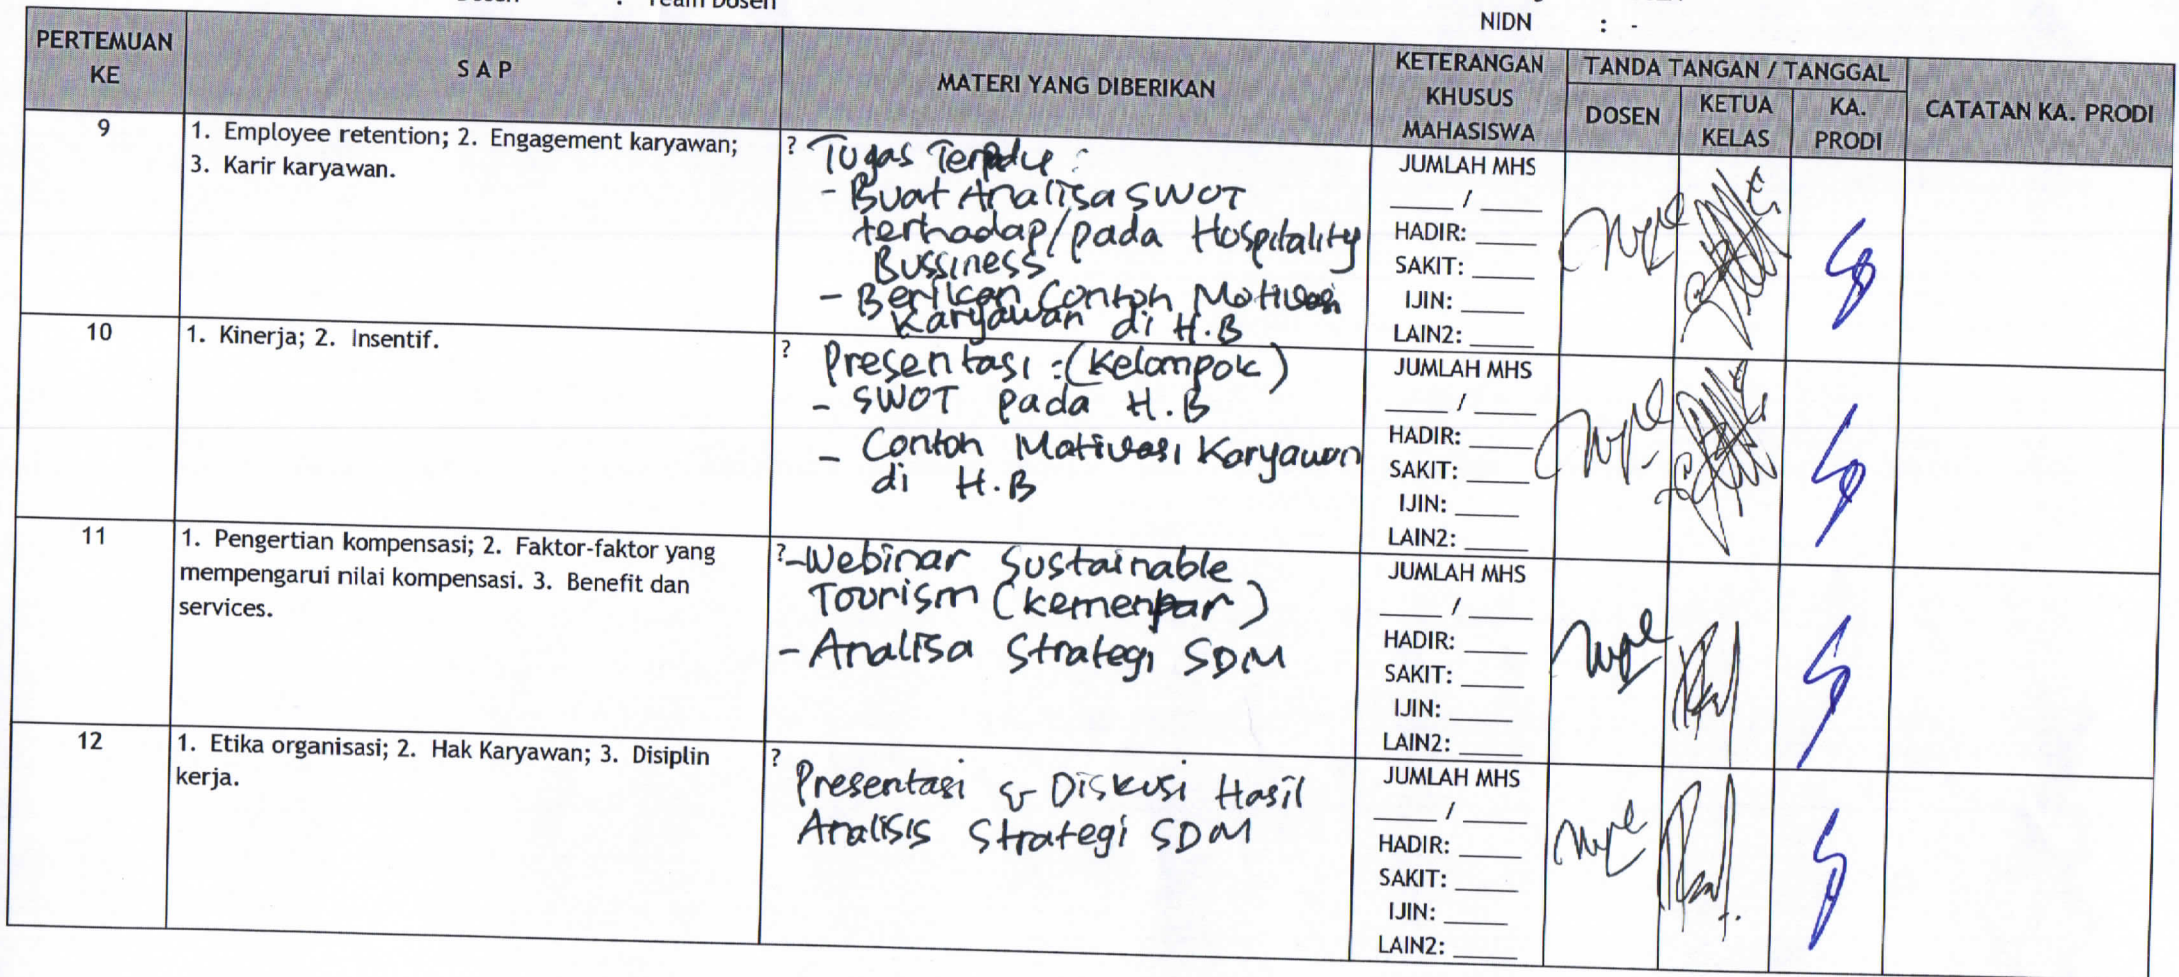 : Team Dosen
NIDN : -
PERTEMUAN KE
S A P
MATERI YANG DIBERIKAN
KETERANGAN KHUSUS MAHASISWA
TANDA TANGAN / TANGGAL
DOSEN
KETUA KELAS
KA. PRODI
CATATAN KA. PRODI
9
1. Employee retention; 2. Engagement karyawan;
3. Karir karyawan.
? Tugas :
- Buat Analisa SWOT
terhadap/pada Hospitality
Bussiness
- Berikan Contoh Motivasi
Karyawan di H.B
JUMLAH MHS
____ / ____
HADIR: ____
SAKIT: ____
IJIN: ____
LAIN2: ____
10
1. Kinerja; 2. Insentif.
? Presentasi : (Kelompok)
- SWOT pada H.B
- Contoh Motivasi Karyawan
di H.B
JUMLAH MHS
____ / ____
HADIR: ____
SAKIT: ____
IJIN: ____
LAIN2: ____
11
1. Pengertian kompensasi; 2. Faktor-faktor yang
mempengarui nilai kompensasi. 3. Benefit dan
services.
? - Webinar Sustainable
Tourism (kemenpar)
- Analisa Strategi SDM
JUMLAH MHS
____ / ____
HADIR: ____
SAKIT: ____
IJIN: ____
LAIN2: ____
12
1. Etika organisasi; 2. Hak Karyawan; 3. Disiplin
kerja.
? Presentasi & Diskusi Hasil
Analisis Strategi SDM
JUMLAH MHS
____ / ____
HADIR: ____
SAKIT: ____
IJIN: ____
LAIN2: ____